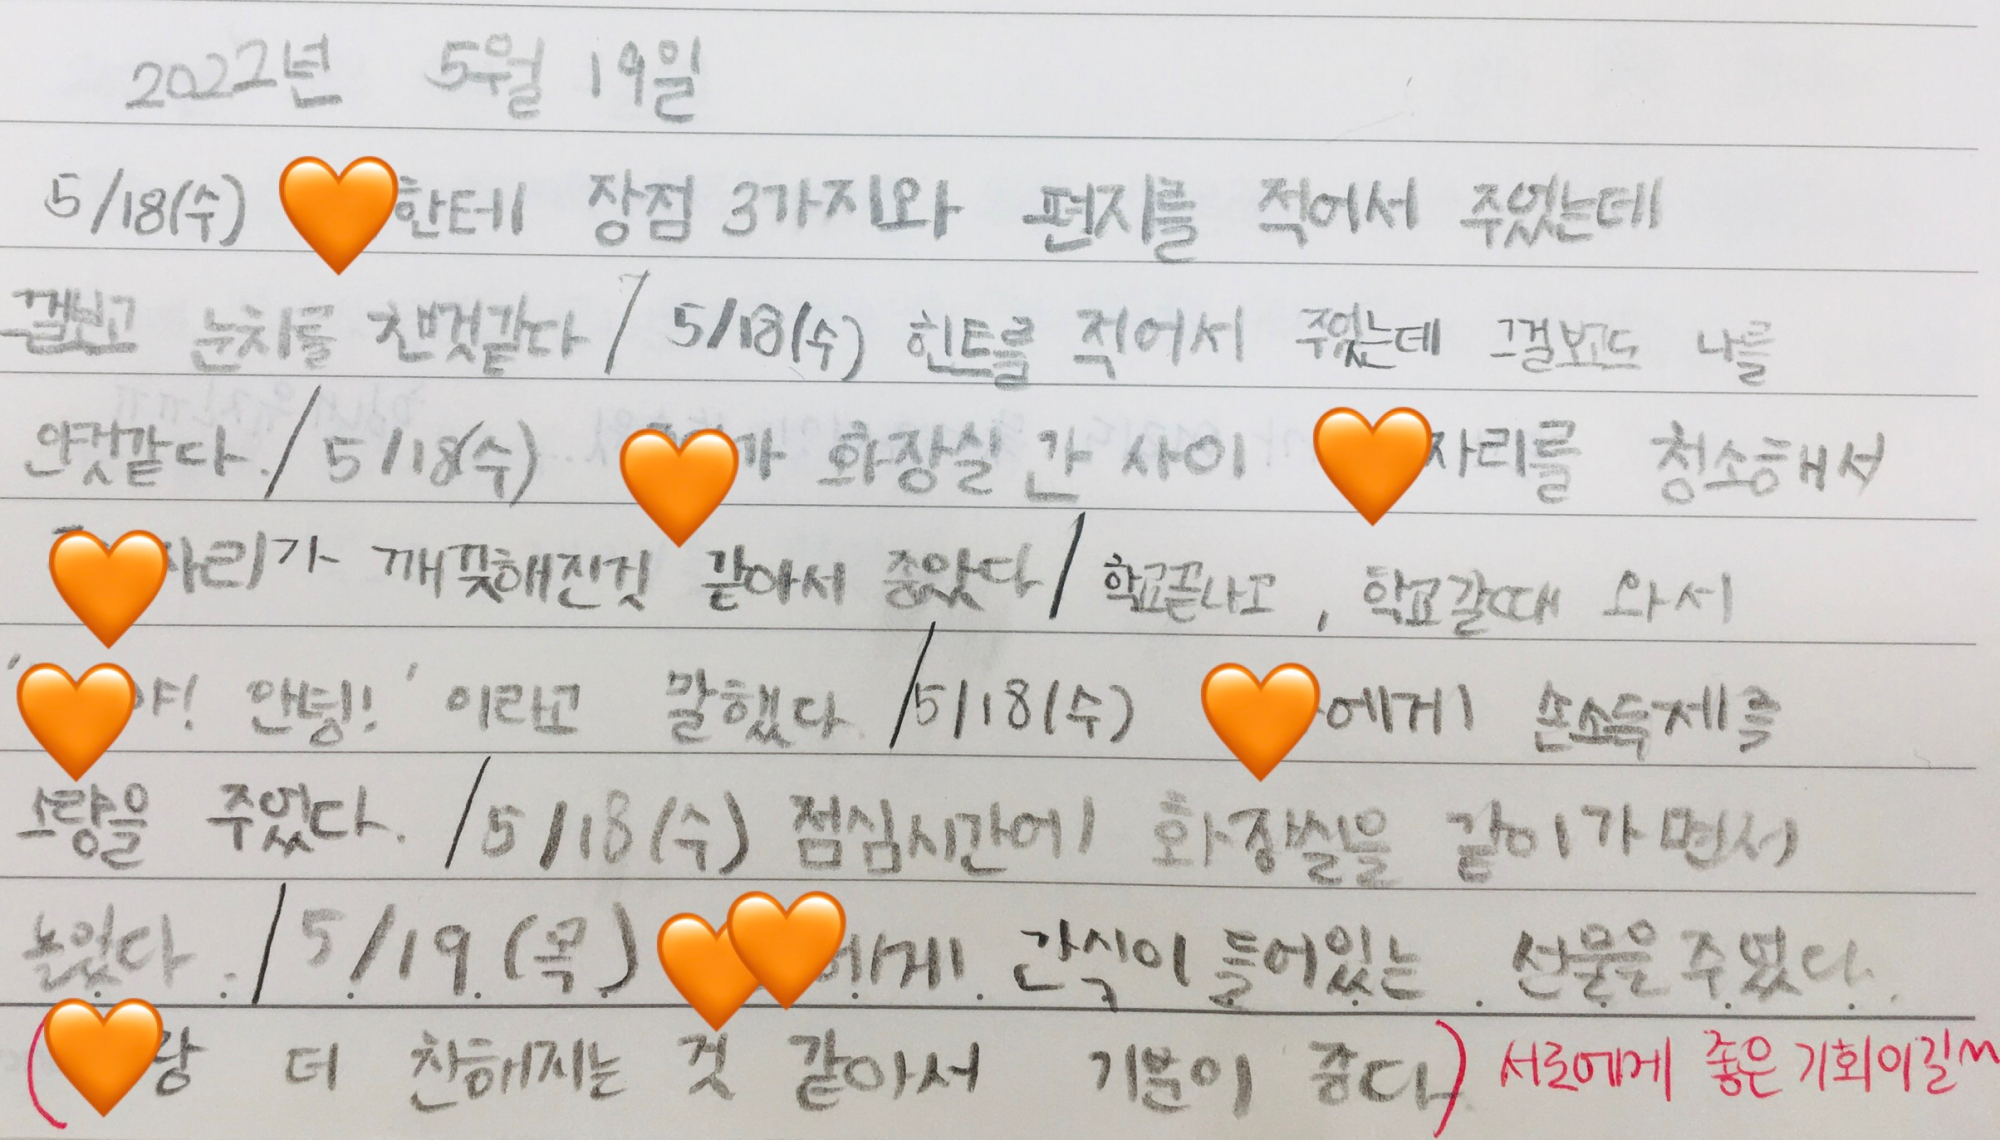 2022년 5월 19일
5/18(수) 한테 장점 3가지와 편지를 적어서 주었는데
그걸보고 눈치를 챈것같다 / 5/18(수) 힌트를 적어서 주었는데 그걸보고도 나를
안것같다. / 5/18(수) 가 화장실 간 사이 자리를 청소해서
자리가 깨끗해진것 같아서 좋았다 / 학교끝나고, 학교갈때 와서
' 야! 안녕!' 이라고 말했다. / 5/18(수) 에게 손소독제를
소량을 주었다. / 5/18(수) 점심시간에 화장실을 같이가면서
놀았다. / 5/19(목) 에게 간식이 들어있는 선물을 주었다.
( 랑 더 친해지는 것 같아서 기분이 좋다.) 서로에게 좋은 기회이길